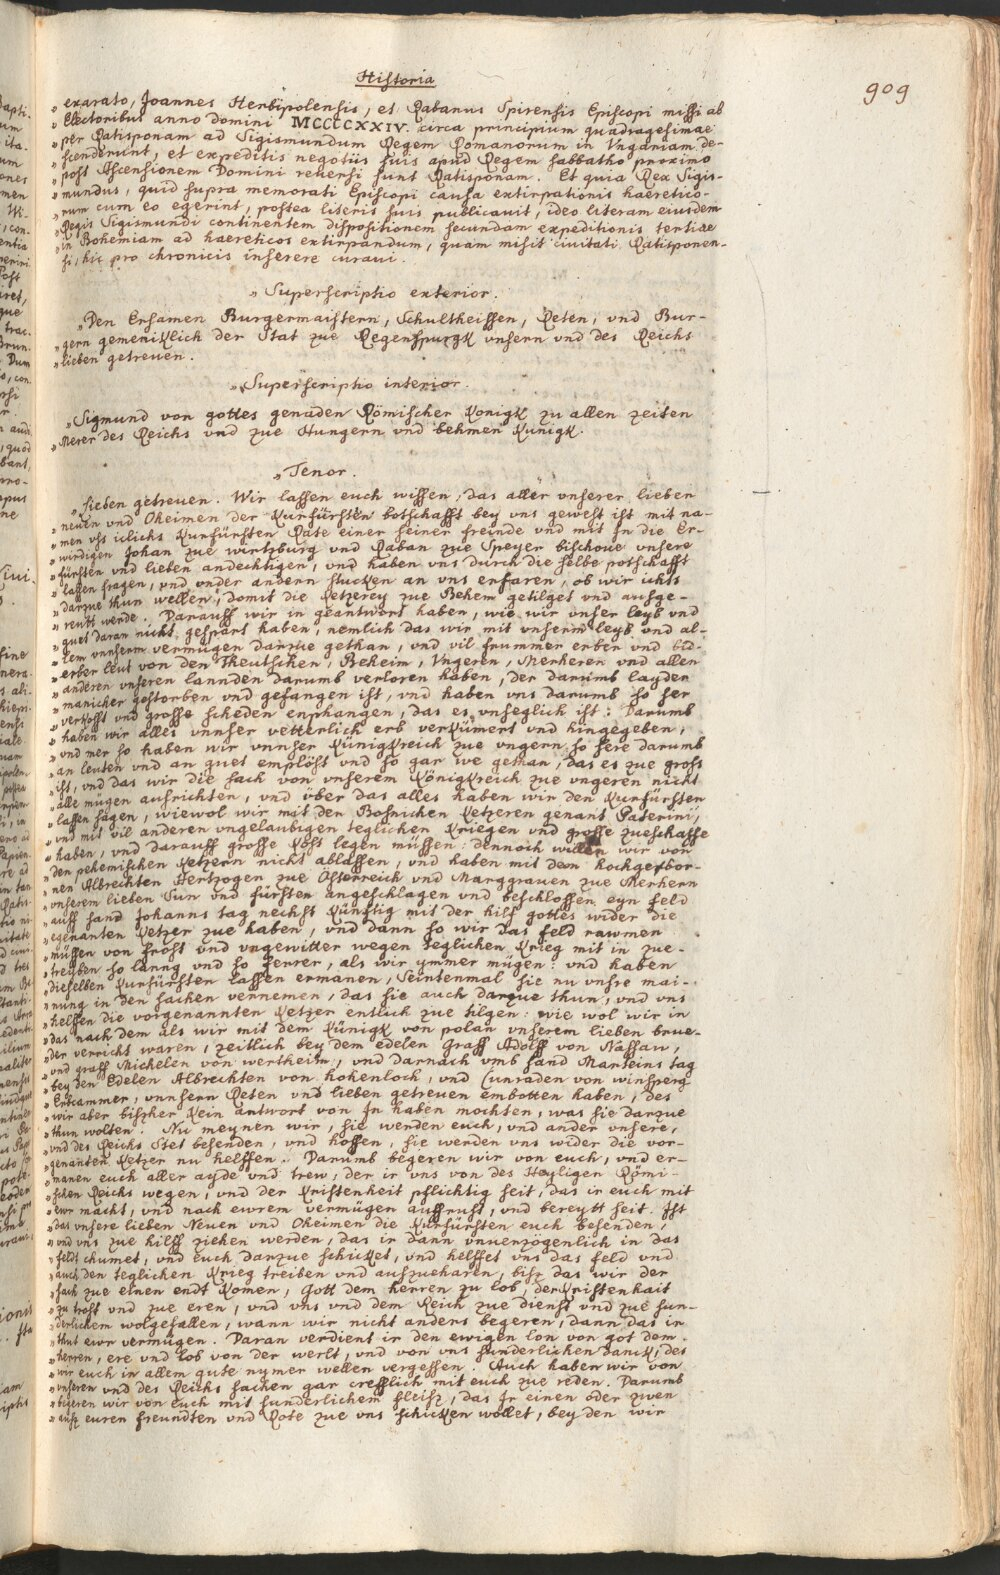 Historia
909
„ exarato, Joannes Herbipolensis, et Rabanus Spirensis Episcopi missi ab
„ Electoribus anno domini MCCCCXXIV. circa principium quadragesimae
„ per Ratisponam ad Sigismundum Regem Romanorum in Vngariam de-
„ scenderunt, et expeditis negotiis suis apud Regem sabbatho proximo
„ post Ascensionem Domini reuersi sunt Ratisponam. Et quia Rex Sigis-
„ mundus, quid supra memorati Episcopi causa extirpationis haeretico-
„ rum cum eo egerint, postea literis suis publicauit, ideo literam eiusdem
„ Regis Sigismundi continentem dispositionem secundam expeditionis tertiae
„ in Bohemiam ad haereticos extirpandum, quam misit ciuitati Ratisponen-
„ si, hic pro chronicis inserere curaui.
„ Superscriptio exterior.
„ Den Ersamen Burgermaistern, Schultheissen, Reten, vnd Bur-
„ gern gemeniklich der Stat zue Regenspurgk vnsern vnd des Reichs
„ lieben getreuen.
„ Superscriptio interior.
„ Sigmund von gottes genaden Römischer Konigk zu allen zeiten
„ Merer des Reichs vnd zue Hungern vnd behmen Kunigk.
„ Tenor.
„ Lieben getreuen. Wir lassen euch wissen, das aller vnserer lieben
„ neuen vnd Oheimen der Kurfürsten botschafft bey vns gewest ist mit na-
„ men vss iclichs Kurfürsten Rate einer seiner freinde vnd mit In die Er-
„ wirdigen Johan zue wirtzburg vnd Raban zue Speyer bischoue vnsere
„ fürsten vnd lieben andechtigen, vnd haben vns durch die selbe potschafft
„ lassen fragen, vnd vnder andern stucken an vns erfaren, ob wir ichts
„ darzue thun wellen, domit die Ketzerey zue Behem getilget vnd ausge-
„ reutt werde. Darauff wir in geantwort haben, wie wir vnser leyb vnd
„ guet daran nicht gespart haben, nemlich das wir mit vnserm leyb vnd al-
„ lem vnnserm vermügen darzue gethan, vnd vil frummer erber vnd
„ erber leut von den Theutschen, Beheim, Vngeren, Merheren vnd allen
„ anderen vnseren lannden darumb verloren haben, der darumb layder
„ manicher gestorben vnd gefangen ist, vnd haben vns darumb so ser
„ verkosst vnd grosse scheden enphangen, das es vnseglich ist: Darumb
„ haben wir alles vnnser vetterlich erb verkümert vnd hingegeben,
„ vnd mer so haben wir vnnser Künigkreich zue vngern so sere darumb
„ an leuten vnd an guet emplöst vnd so gar we gethan, das es zue gross
„ ist, vnd das wir die sach von vnserem Königkreich zue vngeren nicht
„ alle mügen ausrichten, vnd über das alles haben wir den Kurfürsten
„ lassen sagen, wiewol wir mit den Bosnichen Ketzeren genant Paterini,
„ vnd mit vil anderen vngelaubigen teglichen Kriegen vnd grosse zueschaffe
„ haben, vnd darauff grosse Kost legen müssen: dennoch wellen wir von
„ den pehemischen Ketzern nicht ablassen, vnd haben mit dem hochgepor-
„ nen Albrechten Hertzogen zue Österreich vnd Marggrauen zue Merhern
„ vnserem lieben Sun vnd fürsten angeschlagen vnd beschlossen, eyn feld
„ auff sand Johanns tag nechst Künftig mit der hilf gottes wider die
„ egenanten Ketzer zue haben, vnd dann so wir das feld rawmen
„ müssen von frost vnd vngewitter wegen teglichen Krieg mit in zue-
„ treyben so lanng vnd so ferrer, als wir ymmer mügen: vnd haben
„ dieselben Kurfürsten lassen ermanen, Seintenmal sie nu vnsre mai-
„ nung in den sachen vernemen, das sie auch darzue thun, vnd vns
„ helffen die vorgenannten Ketzer entlich zue tilgen: wie wol wir in
„ das nach dem als wir mit dem Künigk von polan vnserem lieben brue-
„ der verricht waren, zeitlich bey dem edelen Graff Adolff von Nassau,
„ vnd graff Michelen von wertheim, vnd darnach vmb sand Marteins tag
„ bey den Edelen Albrechten von hohenloch, vnd Cunraden von winsperg
„ Erbcammer, vnnsern Reten vnd lieben getreuen embotten haben, des
„ wir aber biszher Kein antwort von In haben mochten, was sie darzue
„ thun wolten. Nu meynen wir, sie werden euch, vnd ander vnsere,
„ vnd des Reichs Stet besenden, vnd hoffen, sie werden vns wider die vor-
„ genanten Ketzer nu helffen. Darumb begeren wir von euch, vnd er-
„ manen euch aller ayde vnd trew, der ir vns von des Heyligen Römi-
„ schen Reichs wegen, vnd der Kristenheit pflichtig seit, das ir euch mit
„ ewr macht, vnd nach ewrem vermügen aussrust, vnd bereytt seit. Ist
„ das vnsere lieben Neuen vnd Oheimen die Kurfürsten euch besenden,
„ vnd vns zue hilff ziehen werden, das ir dann vnuerzögenlich in das
„ feldt chumet, vnd euch darzue schicket, vnd helffet vns das feld vnd
„ auch den teglichen Krieg treiben vnd auszueharen, bisz das wir der
„ sach zue einen endt Komen, Gott dem herren zu lob, der Kristenhait
„ zu trost vnd zue eren, vnd vns vnd dem Reich zue dienst vnd zue sun-
„ derlichem wolgefallen, wann wir nicht anders begeren, dann das ir
„ thut ewr vermügen. Daran verdient ir den ewigen lon von got dem
„ herren, ere vnd lob von der werlt, vnd von vns sunderlichen danck, des
„ wir euch in allem gute nymer wellen vergessen. Auch haben wir von
„ vnseren vnd des Reichs sachen gar trefflich mit euch zue reden. Darumb
„ bgeren wir von euch mit sunderlichem fleisz, das Ir einen oder zwen
„ ausz euren freundten vnd Rate zue vns schicken wöllet, bey den wir